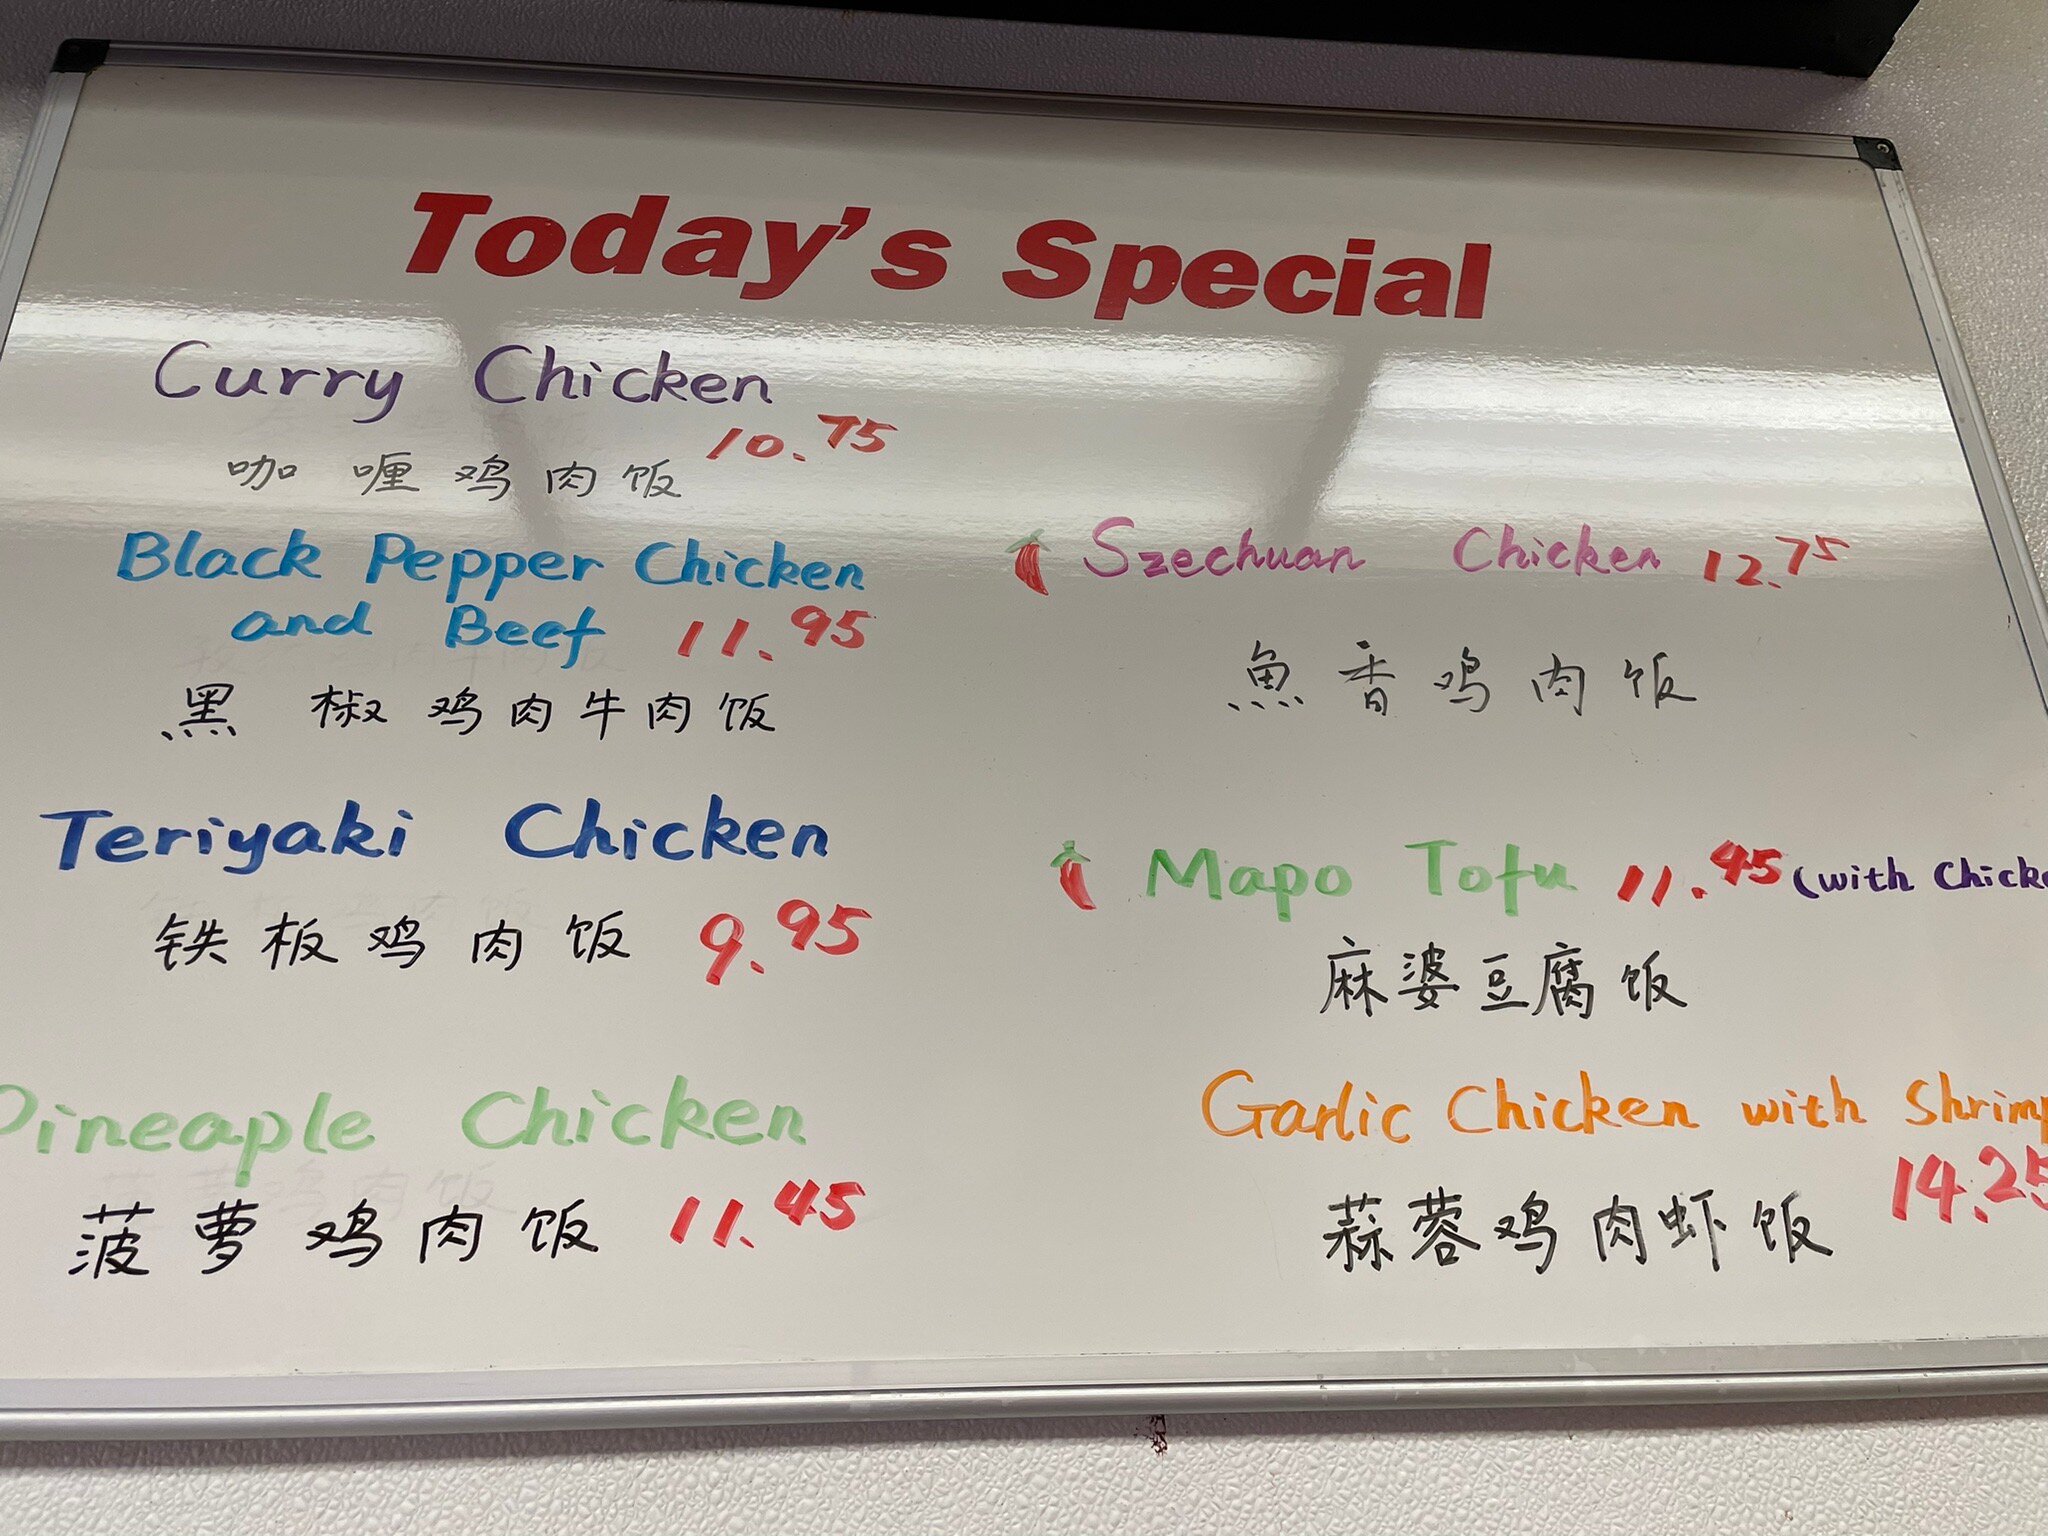 Today's Special
Curry Chicken
10.75
咖喱鸡肉饭
Black Pepper Chicken
and Beef 11.95
黑椒鸡肉牛肉饭
Teriyaki Chicken
铁板鸡肉饭 9.95
Pineaple Chicken
菠萝鸡肉饭 11.45
Szechuan Chicken 12.75
魚香鸡肉饭
Mapo Tofu 11.45 (with Chicke
麻婆豆腐饭
Garlic Chicken with Shrimp
14.25
蒜蓉鸡肉虾饭